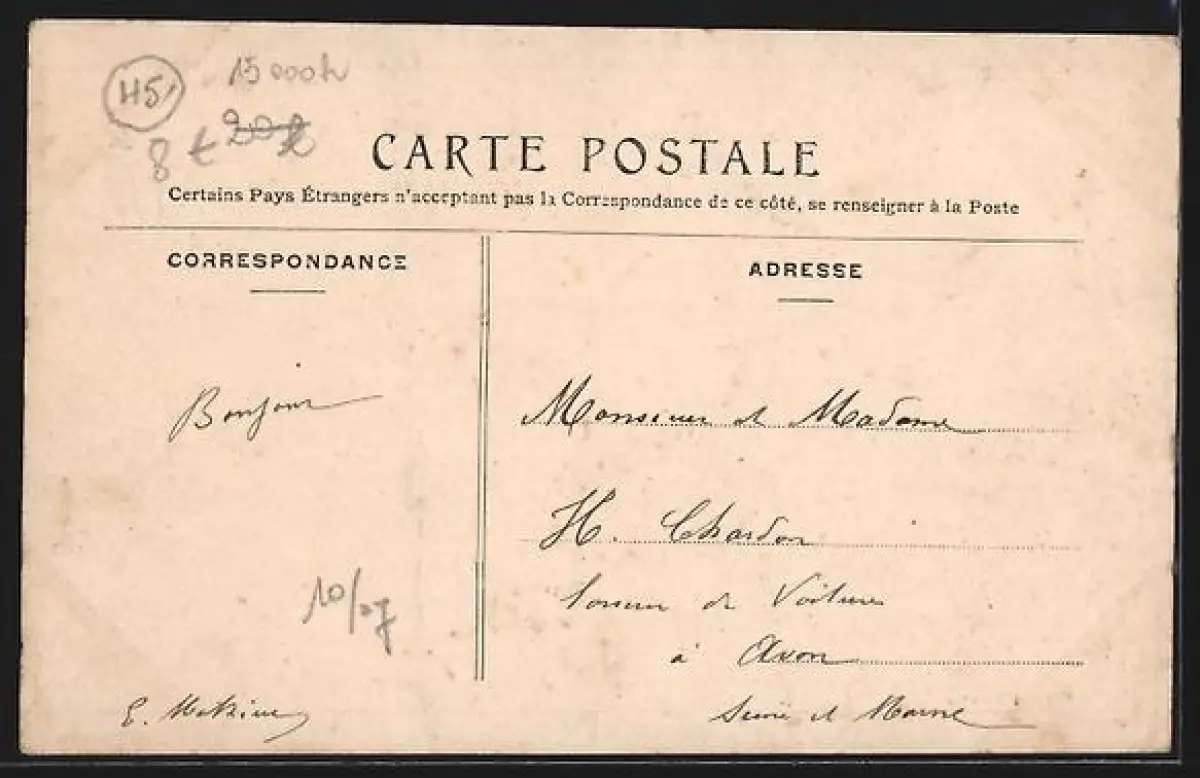 H5
15 000h
8 € 20 €
CARTE POSTALE
Certains Pays Étrangers n'acceptant pas la Correspondance de ce côté, se renseigner à la Poste
CORRESPONDANCE
ADRESSE
Bonjour
Monsieur et Madame
H. Chardon
Loueur de Voitures
à Avon
Seine et Marne
10/07
E.